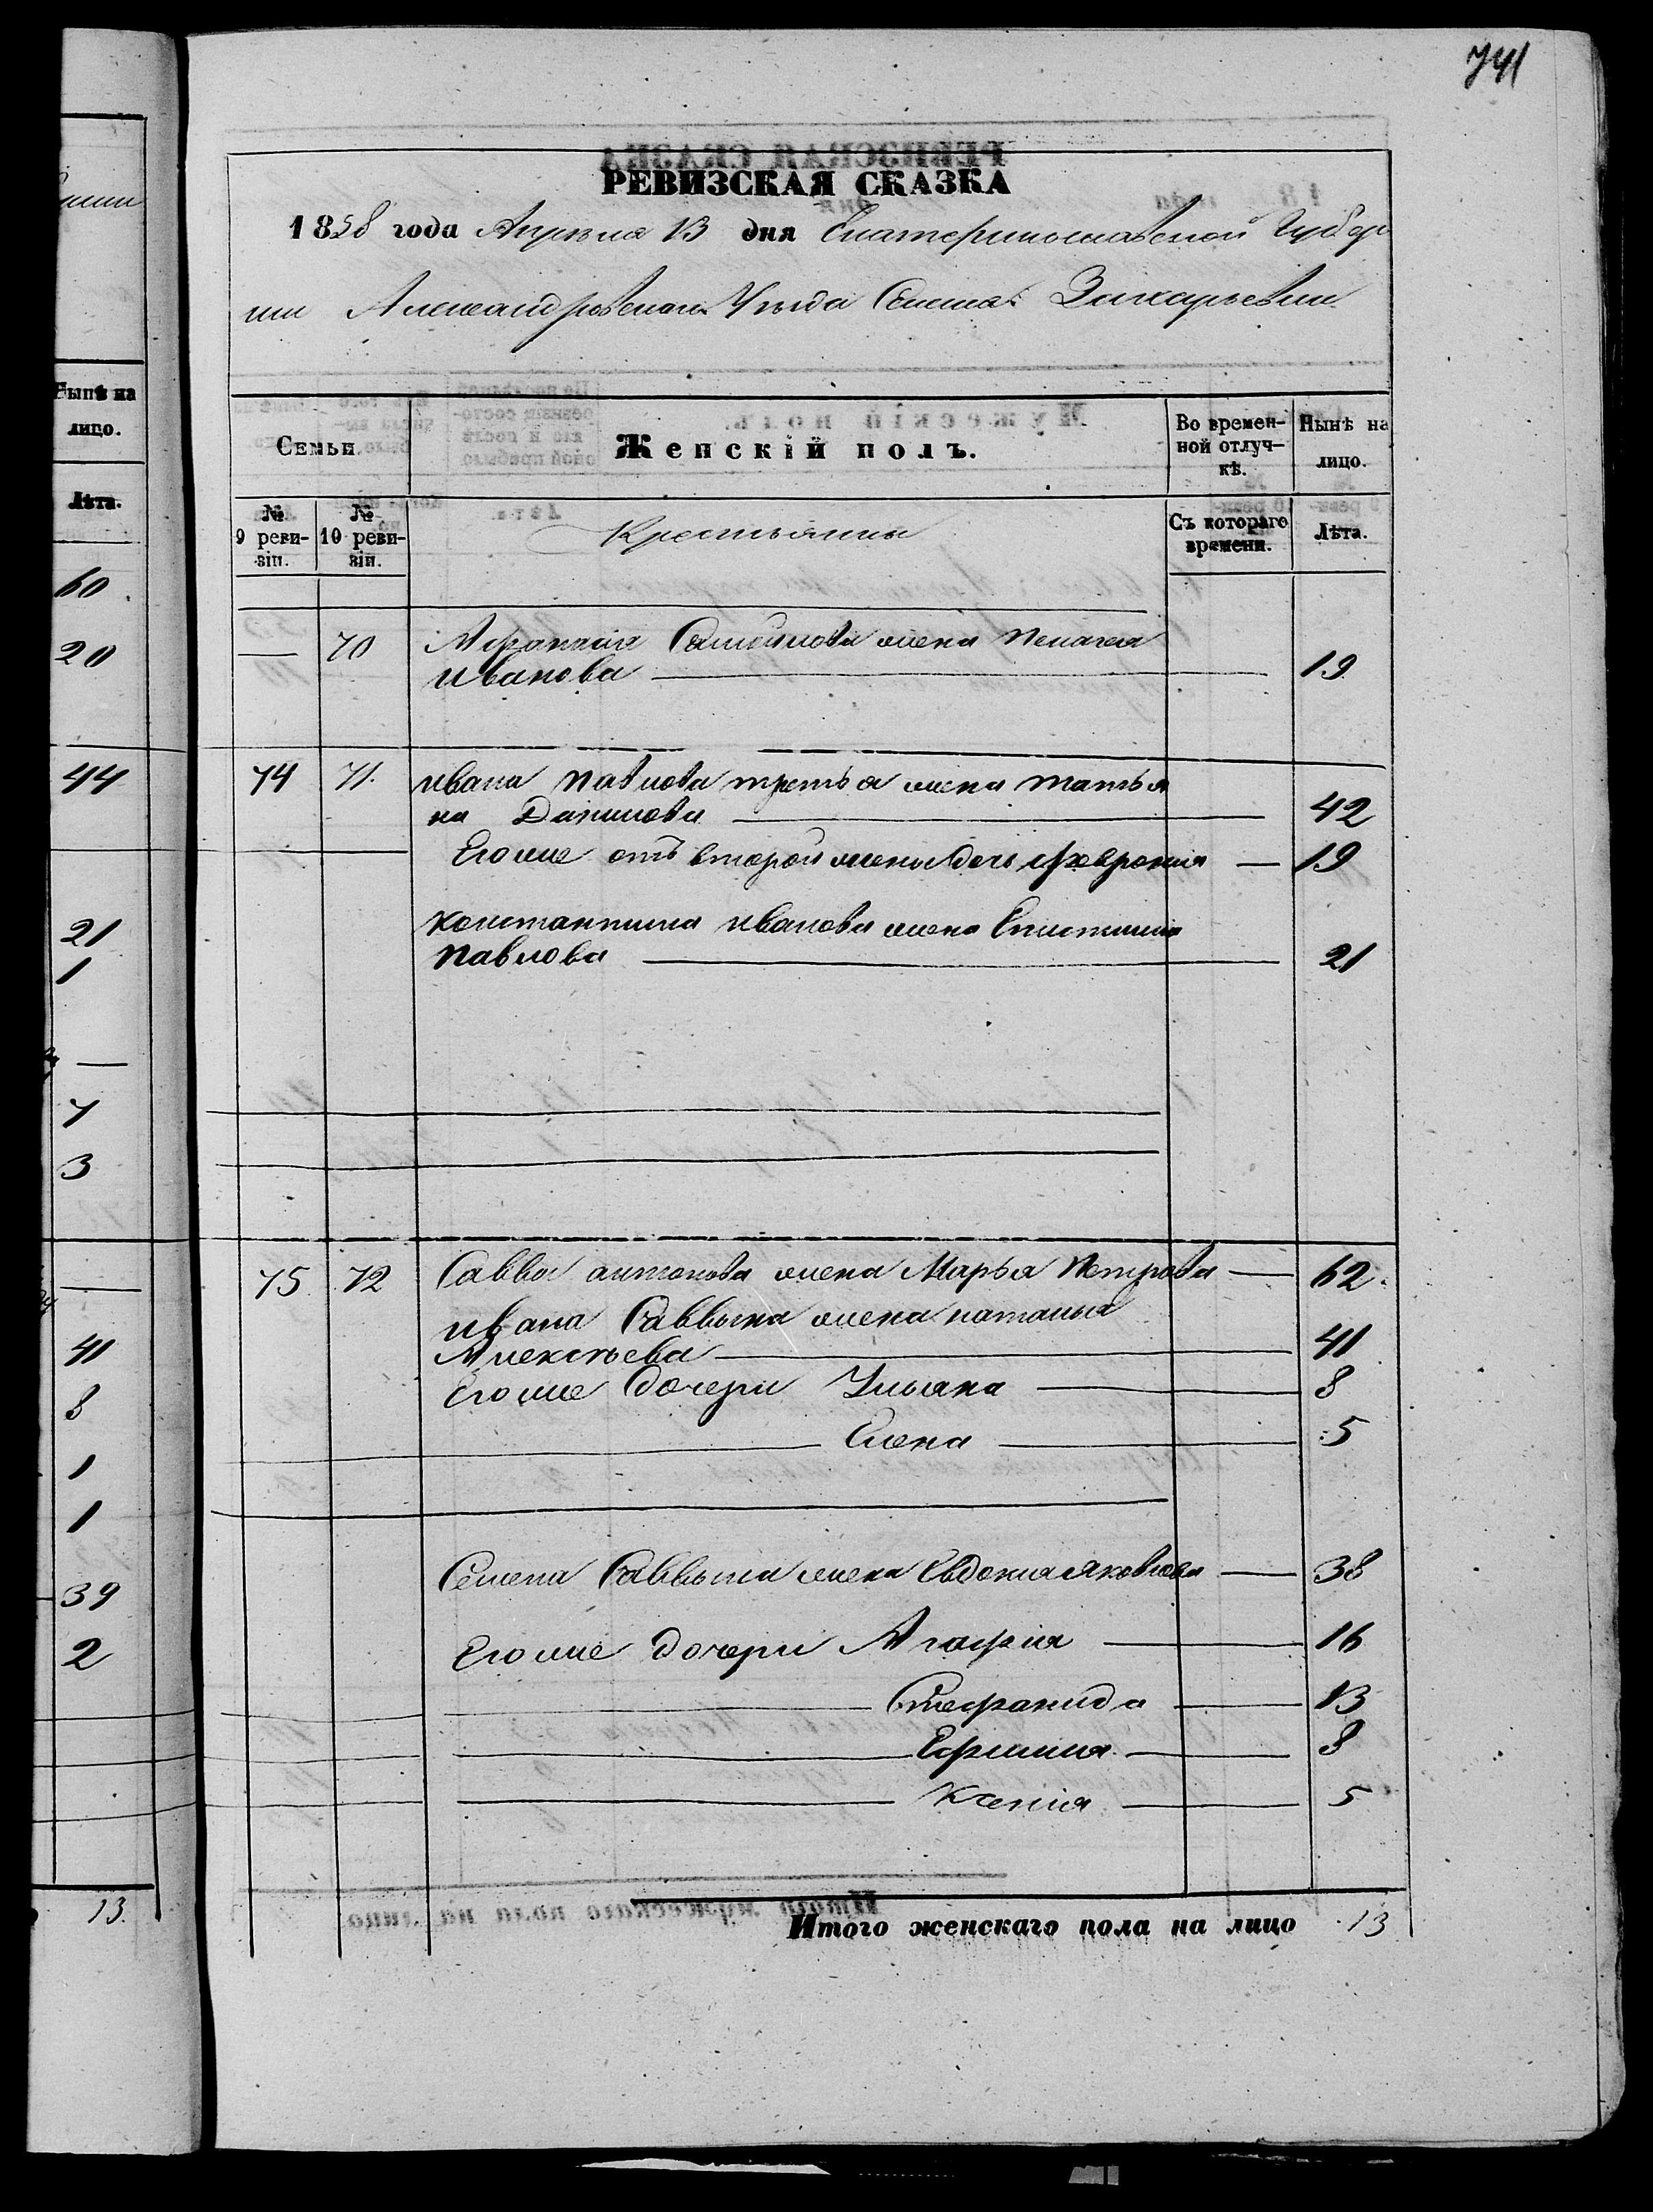 741
РЕВИЗСКАЯ СКАЗКА
1858 года Апреля 13 дня Екатеринославской Губер
нии Александровскаго Уезда Селения Захарьевки
Семьи
Женскій полъ.
Во времен-
ной отлуч-
кѣ.
Нынѣ на
лицо.
№
9 реви-
зіи.
№
10 реви-
зіи.
Крестьянны
Съ котораго
времени.
Лѣта.
— 70 жена Пелагея
Иванова — 19
74 71. Ивана Павлова третья жена Татья
на Данилова — 42
Его же отъ второй жены дочь Феврония — 19
Константина Иванова жена
Павлова — 21
75. 72 Саввы Антонова жена Марья Петрова — 62.
Ивана Саввына жена Наталья
Алексѣева — 41
Его же дочери Ульяна — 8
— Елена — 5
Семена Саввына жена Евдокия Яковлева — 38
Его же дочери Агафия — 16
— Стефанида — 13
— Ефимия — 8
— Ксения — 5
Итого женскаго пола на лицо 13
Нынѣ на
лицо.
Лѣта.
60
20
44
21
1
—
7
3
—
41
8
1
1
39
2
13.